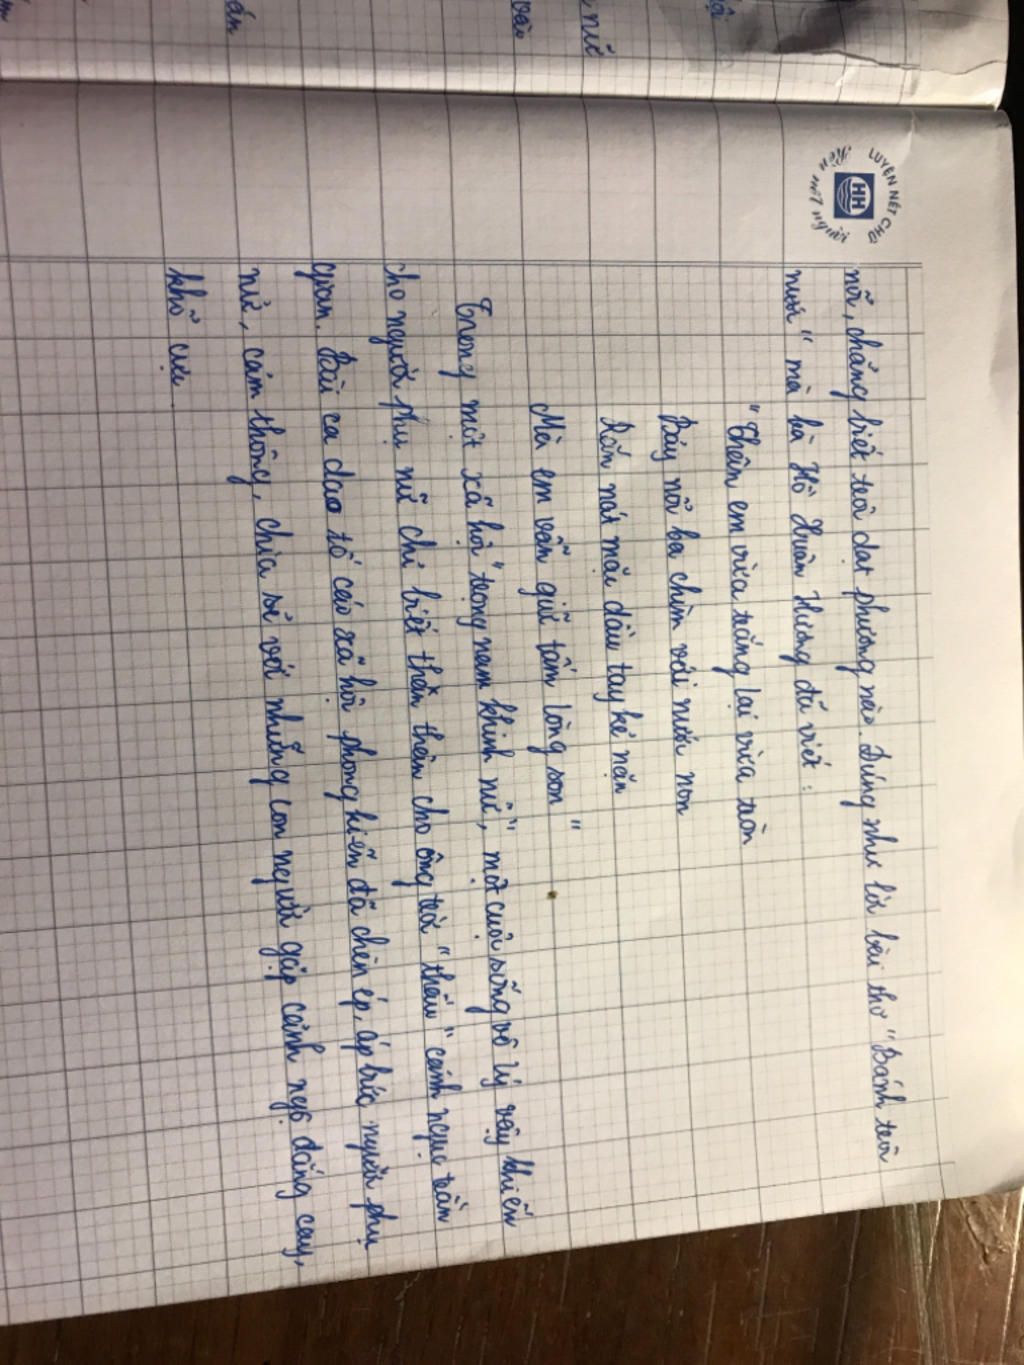 LUYỆN NÉT CHỮ
Rèn nết người
HH
nổi, chẳng biết trôi dạt phương nào. Đúng như lời bài thơ "Bánh trôi
nước" mà bà Hồ Xuân Hương đã viết:
"Thân em vừa trắng lại vừa tròn
Bảy nổi ba chìm với nước non
Rắn nát mặc dầu tay kẻ nặn
Mà em vẫn giữ tấm lòng son"
Trong một xã hội "trọng nam khinh nữ", một cuộc sống vô lý vậy khiến
cho người phụ nữ chỉ biết than thân cho ông trời "thấu" cảnh ngục trần
gian. Bài ca dao tố cáo xã hội phong kiến đã chèn ép, áp bức người phụ
nữ, cảm thông, chia sẻ với những con người gặp cảnh ngộ đắng cay,
khổ cực.